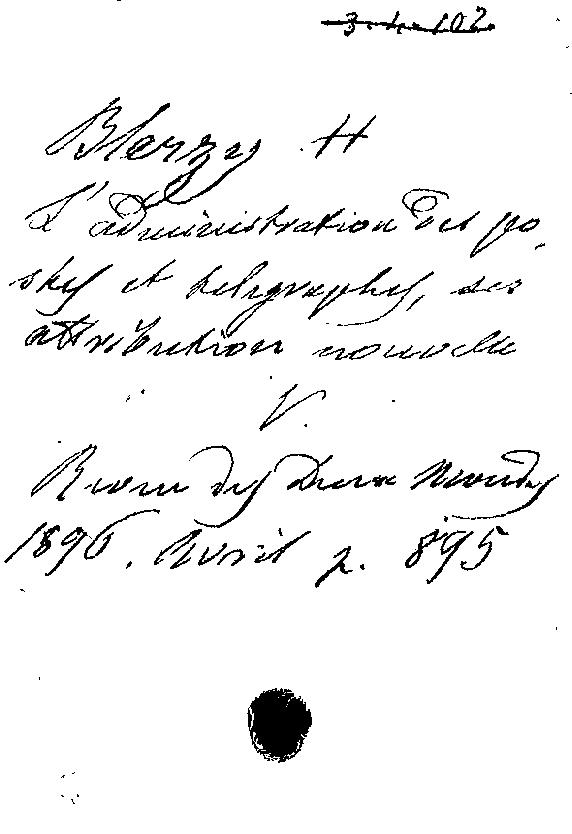 3.4.102.
Blerzy H
L'administration des po-
stes et telegraphes, ses
attribution nouvelle
V.
Revue des Deux Mondes
1896. Avril p. 895